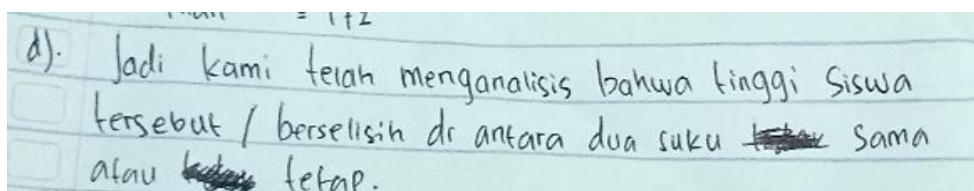 = 1+2
d). Jadi kami telah menganalisis bahwa tinggi siswa
tersebut / berselisih di antara dua suku sama
atau tetap.